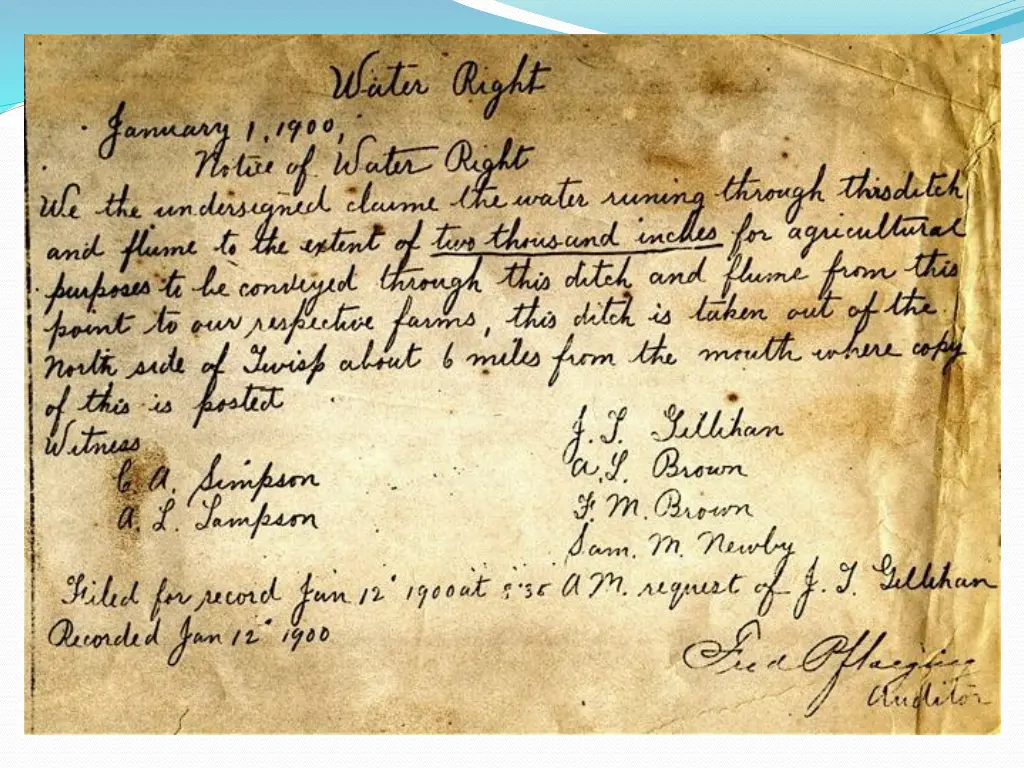 Water Right
January 1, 1900,
Notice of Water Right
We the undersigned claime the water runing through this ditch
and flume to the extent of two thousand inches for agricultural
purposes to be conveyed through this ditch and flume from this
point to our respective farms, this ditch is taken out of the
North side of Twisp about 6 miles from the mouth where copy
of this is posted
Witness
C A. Simpson
A. L. Sampson
J. T. Gillihan
A. L. Brown
F. M. Brown
Sam. M. Newby
Filed for record Jan 12" 1900 at A M. request of J. T. Gillihan
Recorded Jan 12" 1900
Fred
Auditor